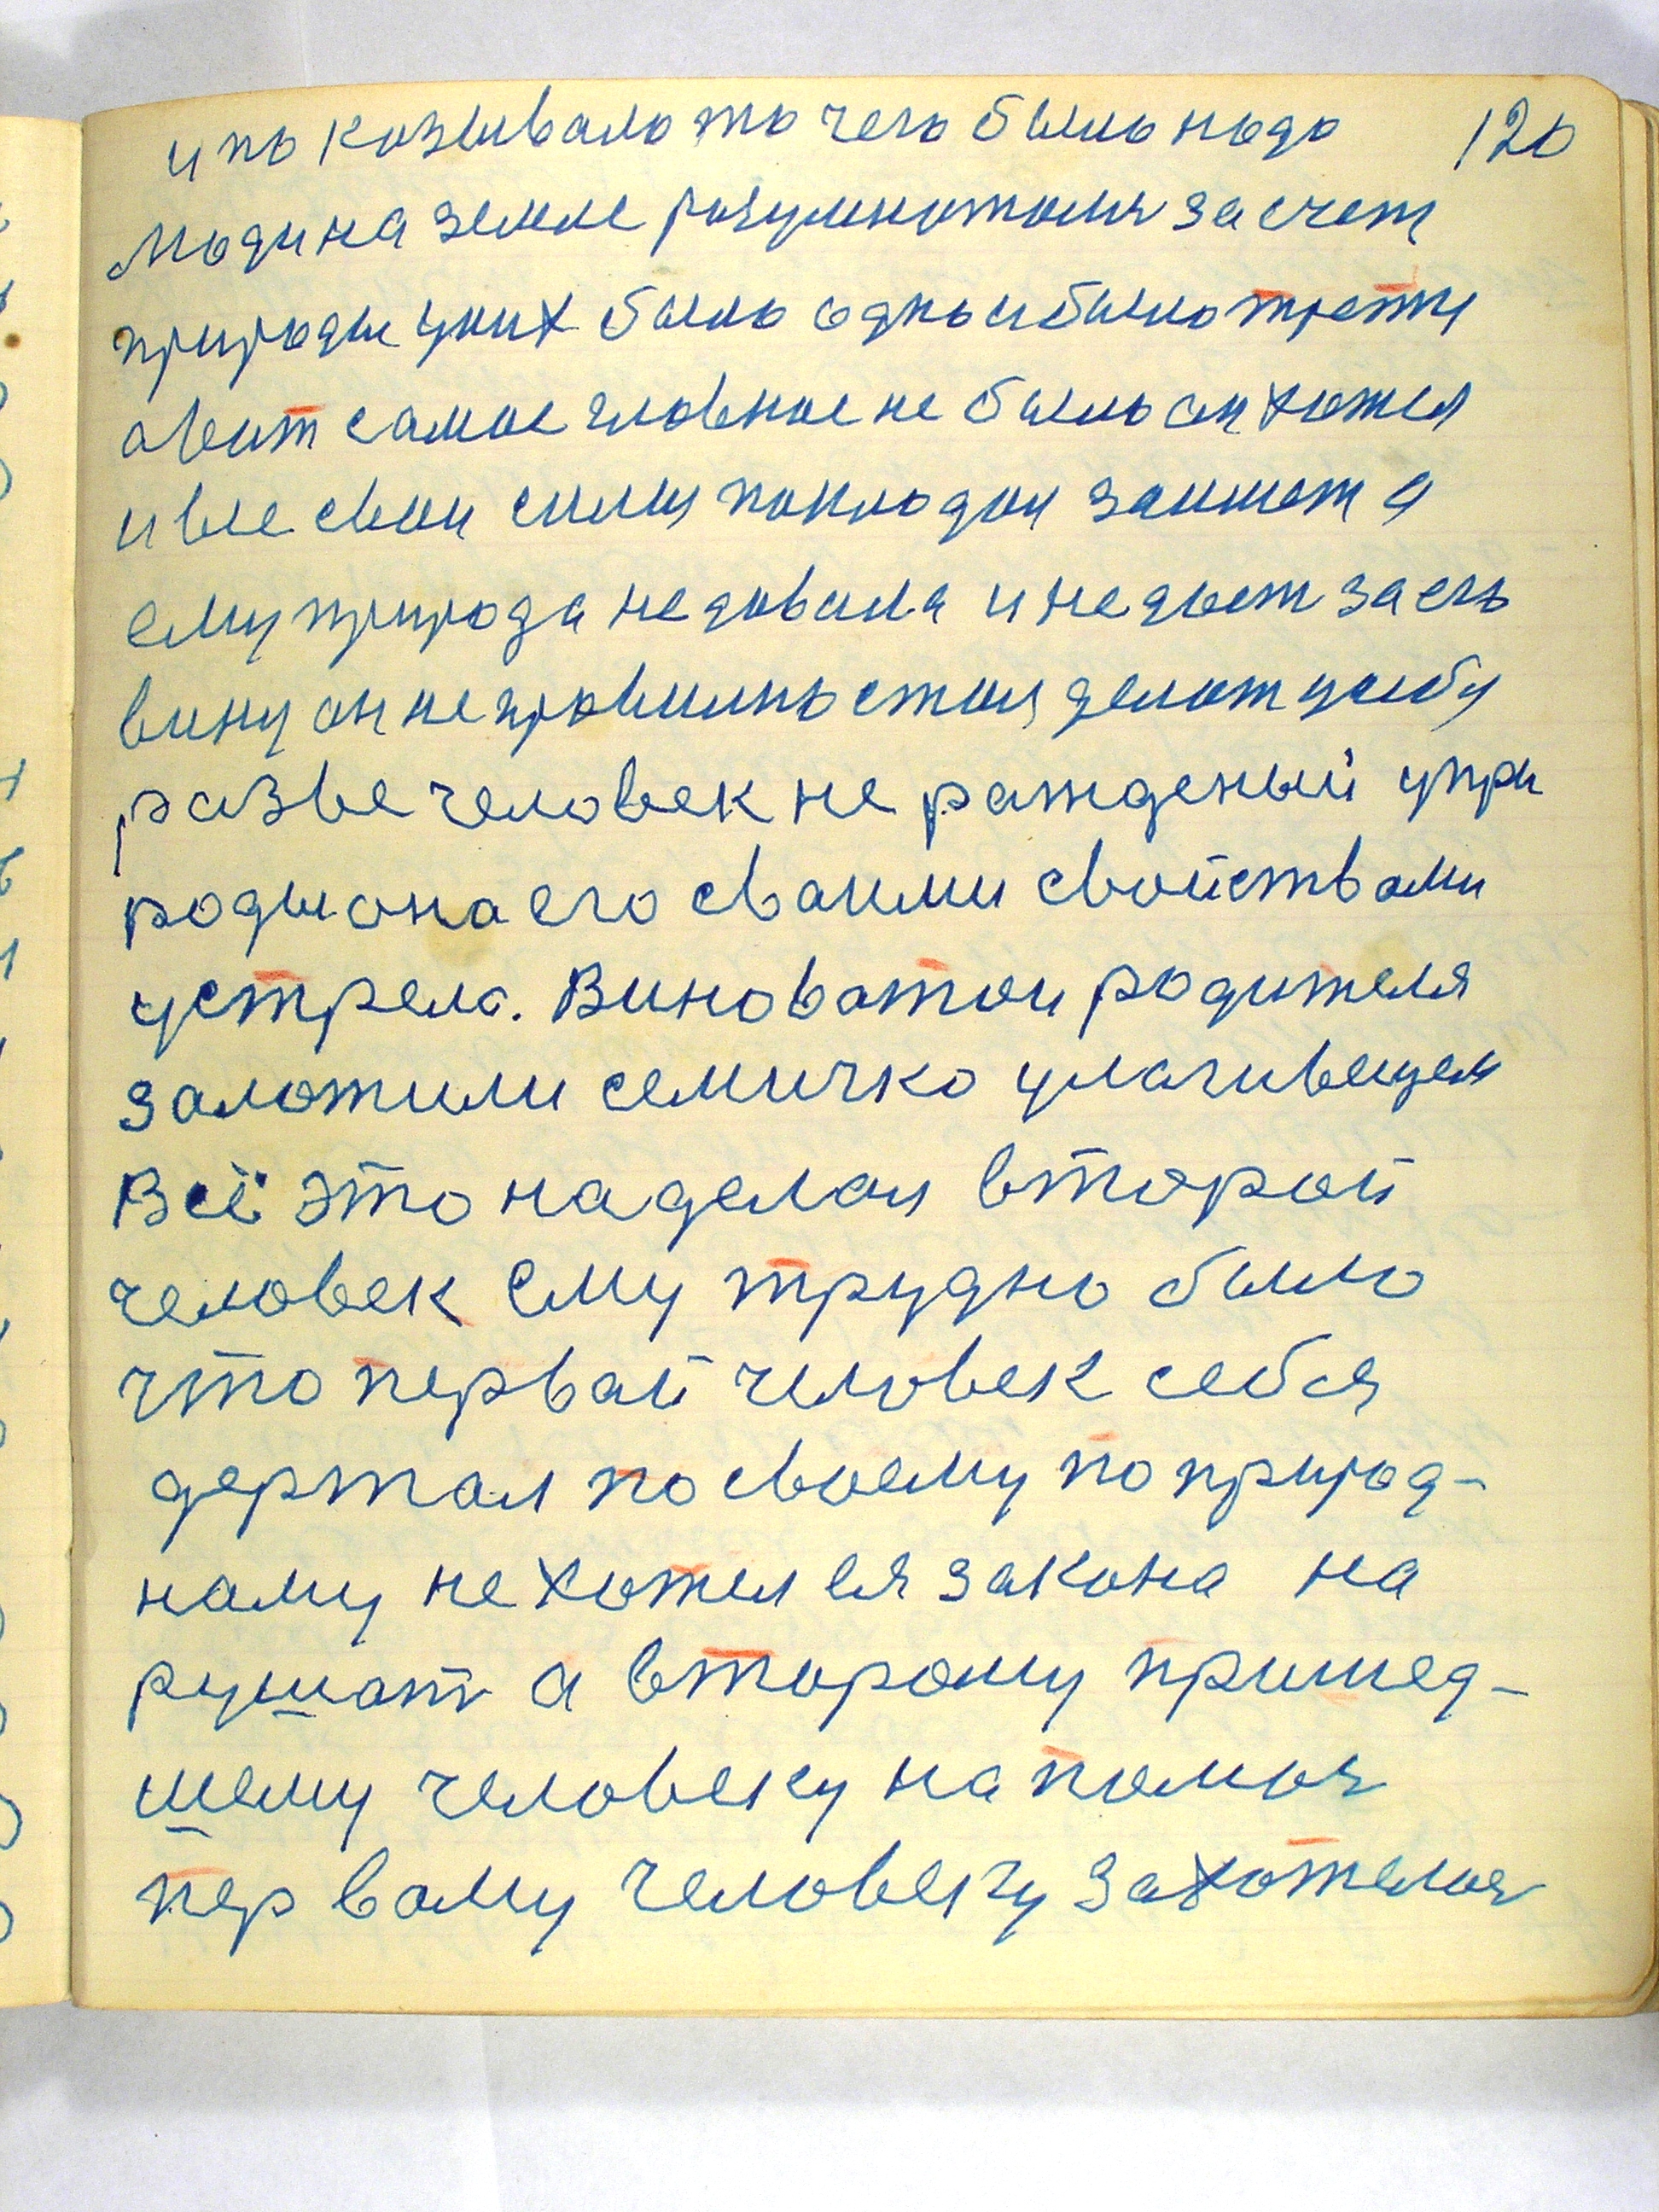 и показывало то чего было надо 120
люди на земле разумножался за счет
природы у них было одно и было третя
а вит самое главное не было он хотел
и все свои силы покладал занимат а
ему природа не давала и не дает за его
вину он не правильно стал делат у себу
разве человек не ражденый у при
роды она его сваими свойствами
устрела. Виноватои родителя
заложили семичко
Всё это наделал второй
человек ему трудно было
что первай человек себя
держал по своему по природ-
наму не хотел ея закона на
рушат а второму пришед-
шему человеку на помоя
первому человеку захотелоя